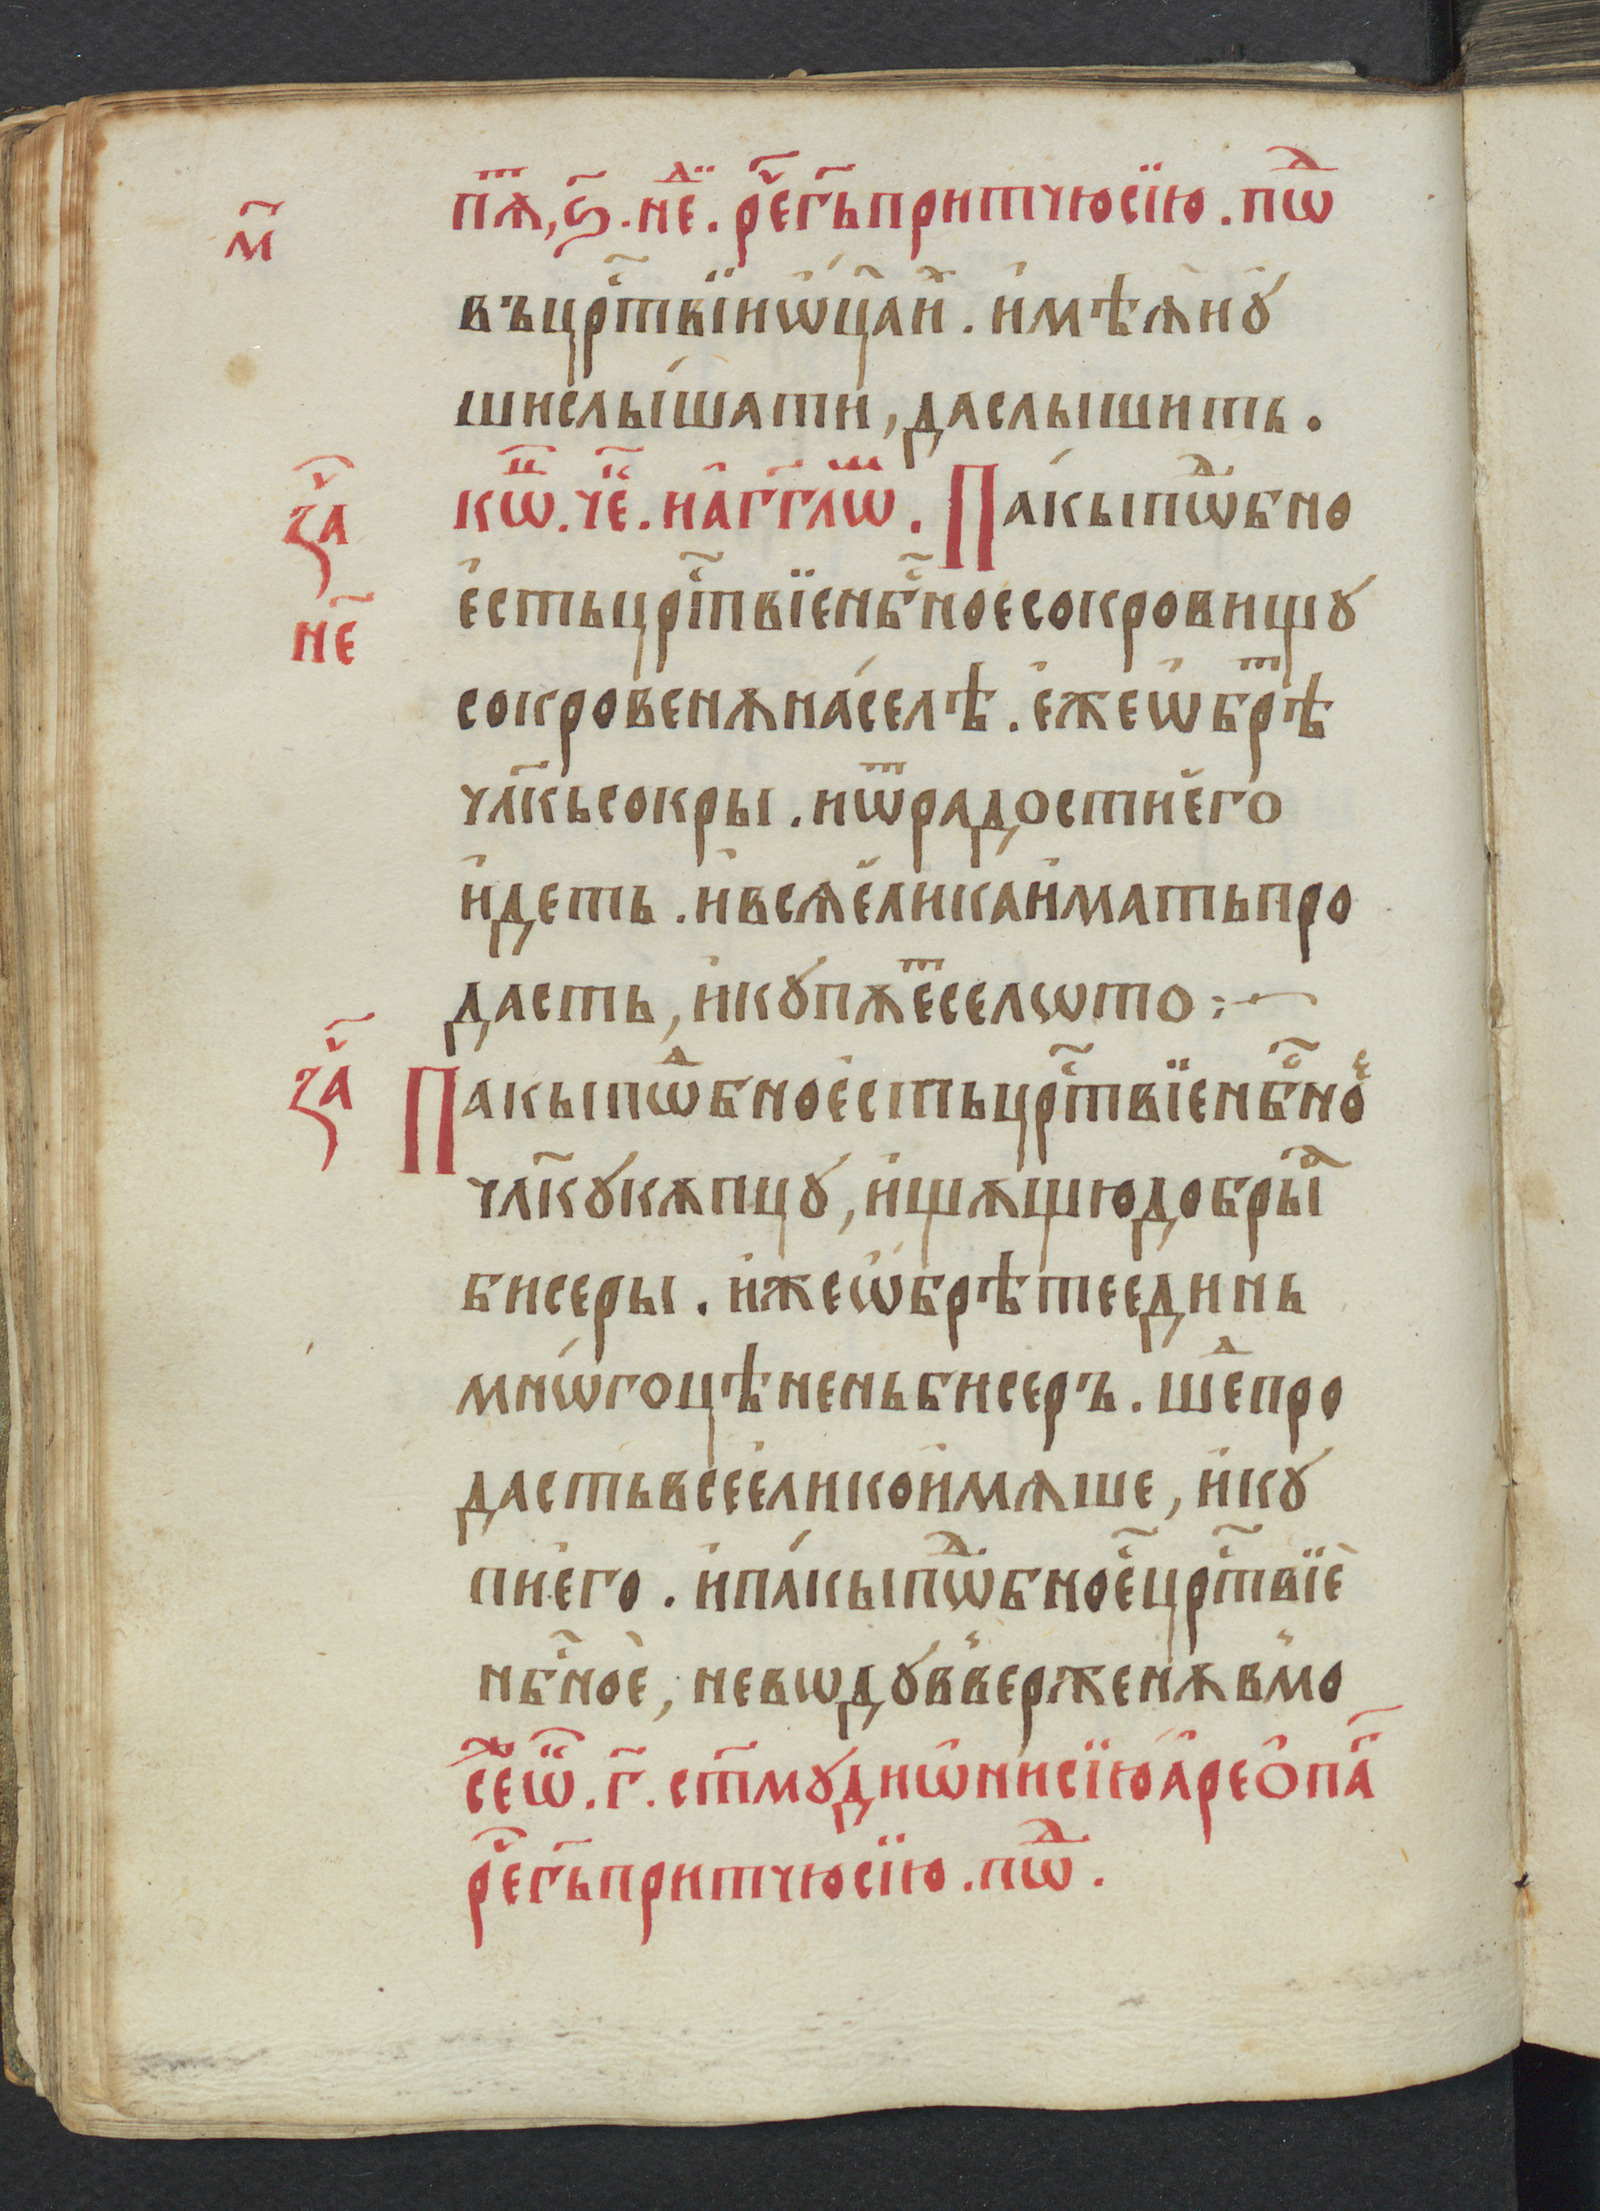 м҃
пѧⷮ, ѕ҃. неⷣ. рⷱ҇е гь҃ притчю сїю. пѡⷣ
въ црⷭ҇твїи ѡц҃а и҆. и҆мѣѧи ѹ
ши слышати, да слышить.
за̾ч
не҃
кѡⷰ. чеⷦ҇. на аг҃глѡⷨ. Пакы пѡⷣбно
есть црⷭ҇твїе нбⷭ҇ное сокровищꙋ
сокровенѧ на селѣ. е҆же ѡ҆брѣⷮ
члк҃ь сокры. и ѿ радости его
и҆деть. и҆ всѧ е҆лика и҆мать про
дасть, и҆ кꙋпѧеⷮ село то:~
за̾ч
Пакы пѡⷣбно есть црⷭ҇твїе нбⷭ҇ноⷷ
члк҃ꙋ кѧпцꙋ, и҆щѧщю добрыⷯ
бисеры. и҆же ѡ҆брѣте единь
мнѡгоцѣнень бисеръ. шеⷣ про
дасть все елико имѧше, и҆ кꙋ
пи его. и҆ пакы пѡⷣбно еⷭ҇ црⷭ҇твїе
нбⷭ҇ное, неводꙋ вверженѧ в мо
сеⷤ ѡⷩ. г҃. ст҃мꙋ диѡнисїю ареопаⷢ҇
рⷱ҇е гь҃ притчю сїю. пѡⷣ.